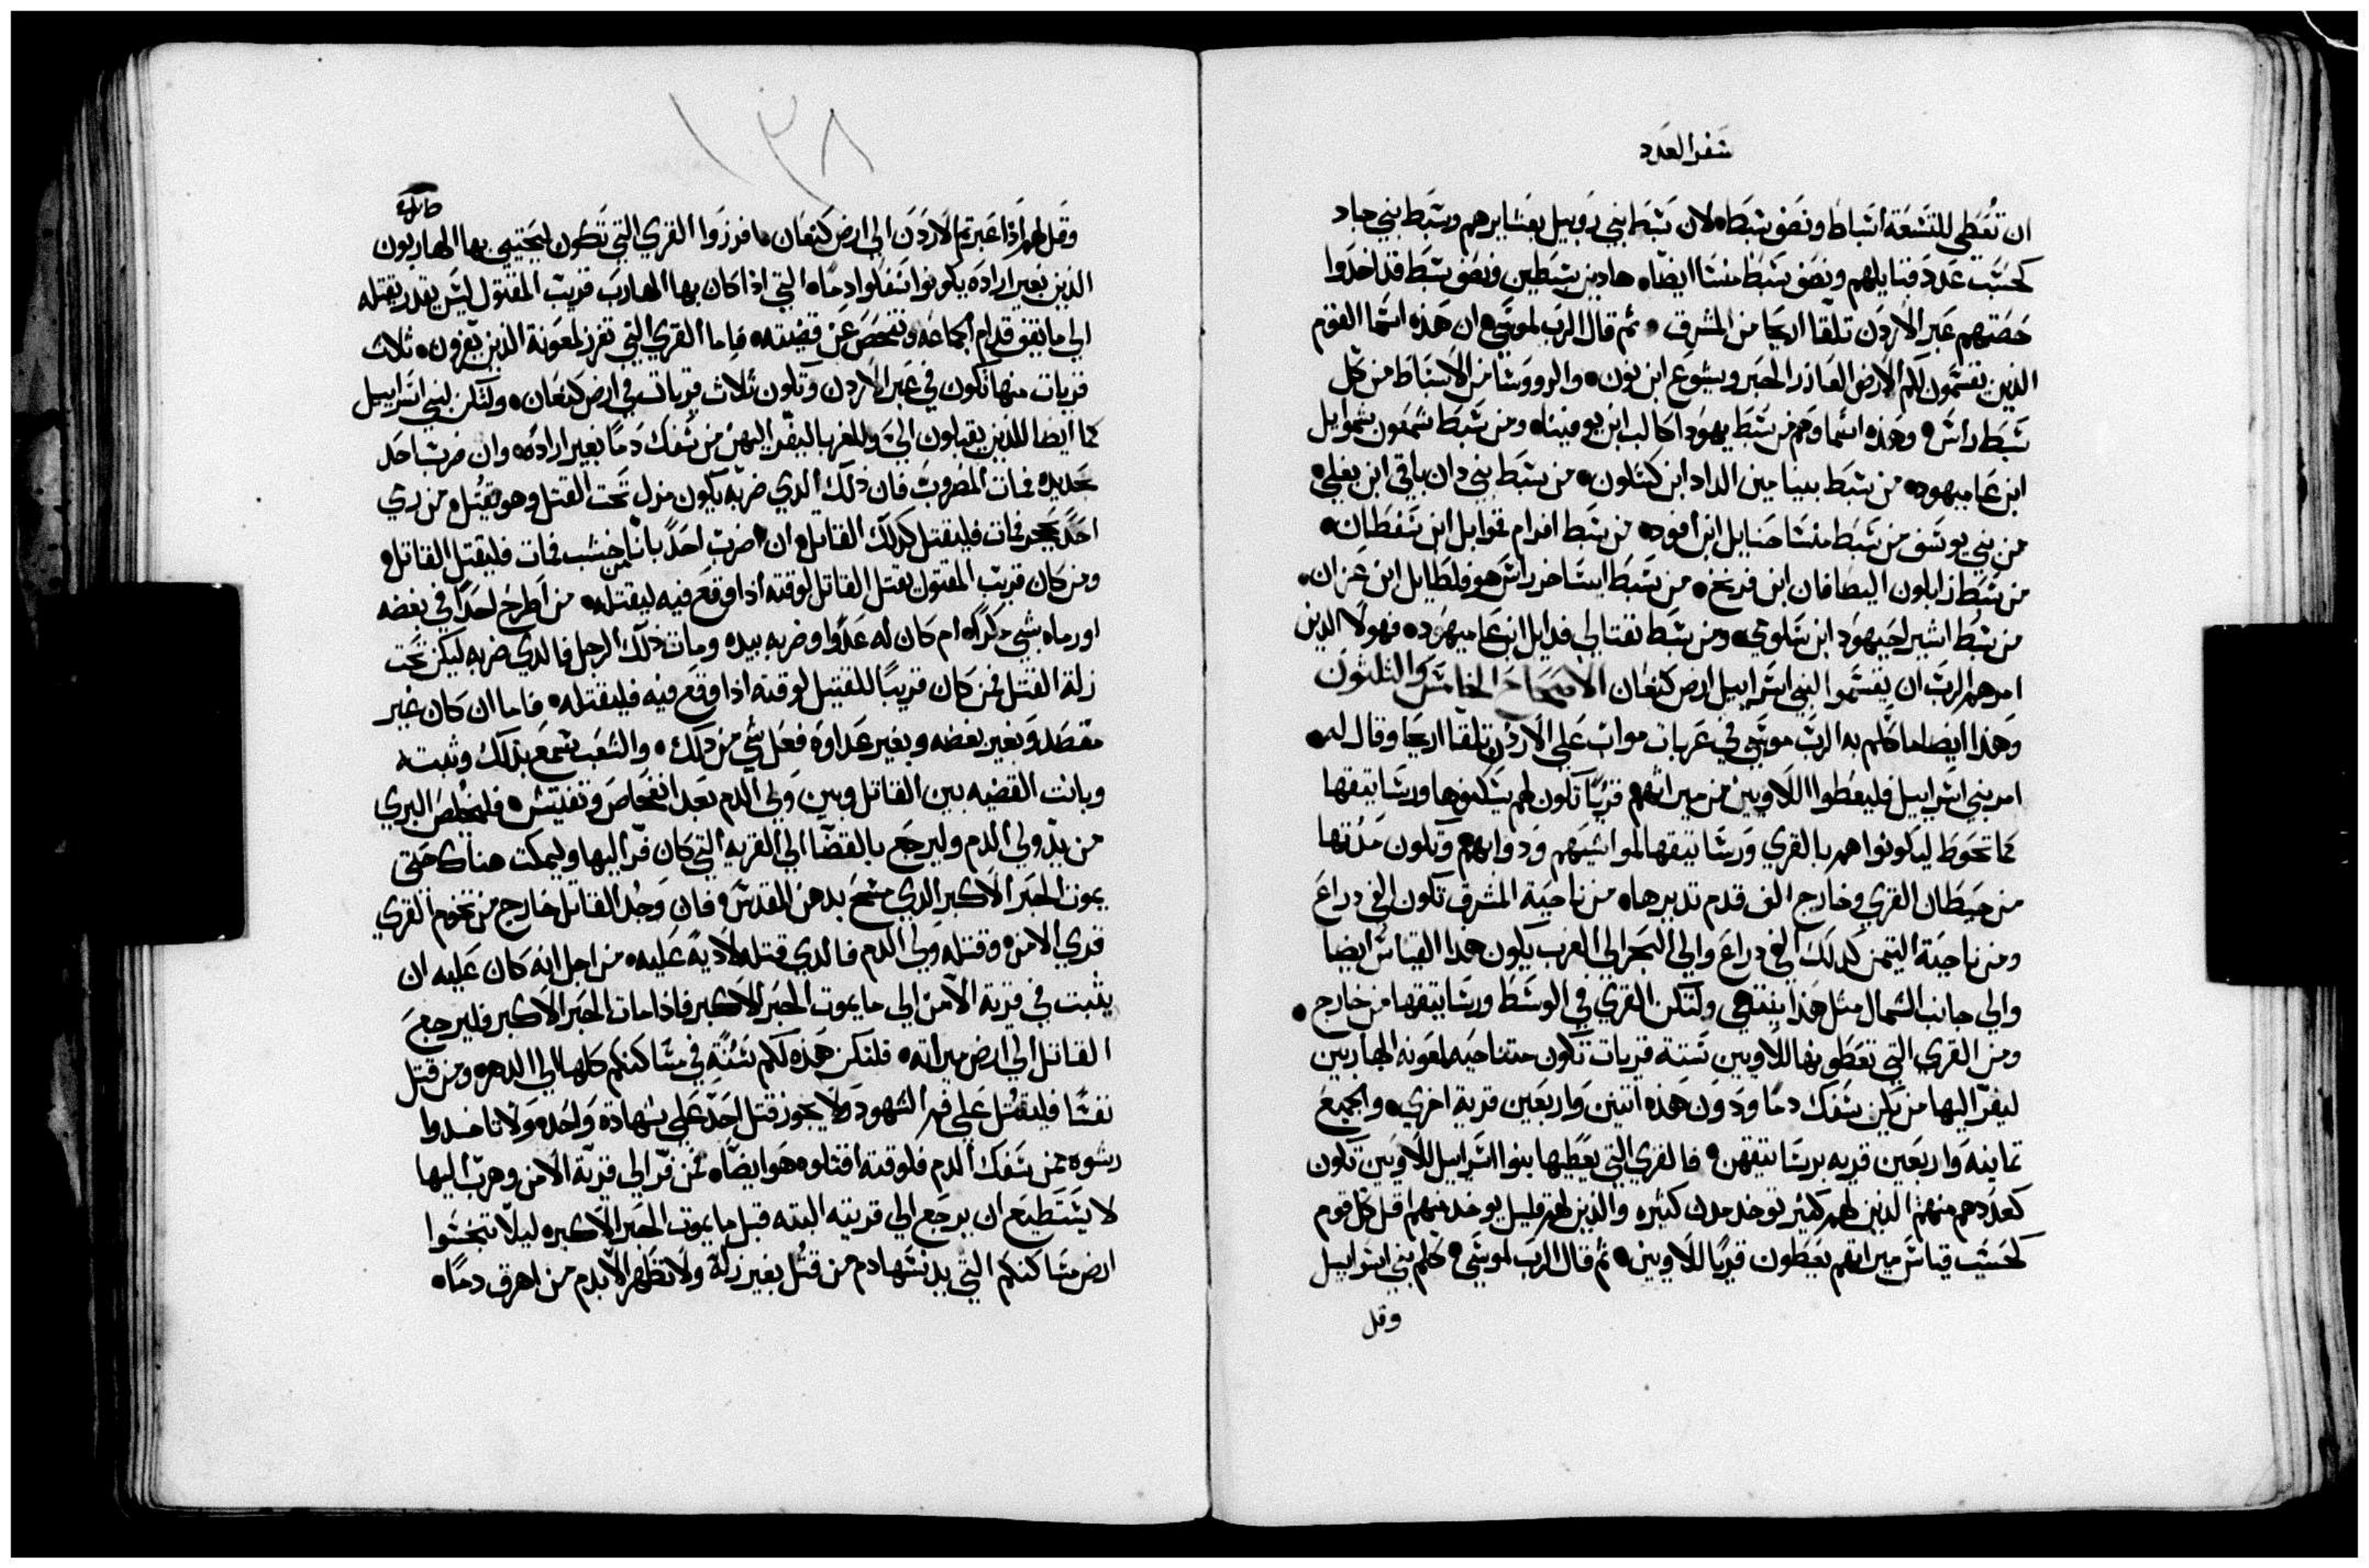 سفر العدد
ان تعطى للتسعة اسباط ونصف سبط لان سبط بني روبيل بعشايرهم وسبط بني جاد
كحسب عدد قبايلهم ونصف سبط منسا ايضاه هاذين سبطين ونصف سبط قد اخدوا
حصتهم عبر الاردن تلقا اريحا من المشرق ثم قال الرب لموسي ان هذه اسما القوم
الذين يقسمون لكم الارض العازر الحبر ويشوع ابن نون والرووسا من الاسباط من كل
سبط راس وهذه اسماوهم من سبط يهودا كالب ابن يوفينا ومن سبط شمعون شموايل
ابن عاميهود من سبط بنيامين الداد ابن كسلون من سبط بني دان باقي ابن يغلي
من بني يوسف من سبط منسا حنايل ابن افود من سبط افرام قموايل ابن سفطان
من سبط زابلون اليصافان ابن فرنخ من سبط ايساخر راس هو فلطايل ابن عزان
من سبط اشير احيهود ابن شلومي ومن سبط نفتالي فدايل ابن عاميهود فهولا الذين
امرهم الرب ان يقسموا لبني اسراييل ارض كنعان الاصحاح الخامس والثلثون
وهذا ايضا ما كلم به الرب موسي في عربات مواب على الاردن تلقا اريحا وقال له
امر بني اسراييل فليعطوا اللاويين من ميراثهم قريًا تكون لهم يسكنوها ورساتيقها
مما تحوط ليكونوا هم بالقري ورساتيقها لمواشيهم ودوابهم وتكون مدتها
من حيطان القري وخارج الف قدم تدبيرها من ناحية المشرق تكون الفي دراع
ومن ناحية التيمن كدلك الفي دراع والي البحر الي الغرب يكون هدا القياس ايضا
والي جانب الشمال مثل هذا ينتهي ولتكن القري في الوسط ورساتيقها من خارج
ومن القري التي تعطونها للاويين ستة قريات تكون متناحيه لمعونه الهاربين
ليفر اليها من يكن سفك دمًا ودون هذه اتنين واربعين قرية اخري والجميع
تمانية واربعين قريه برساتيقهن فالقري التي يعطيها بنوا اسراييل للاويين تكون
كعددهم منهم الذين لهم كثير توخد مدن كثيره والذين لهم قليل يوخد منهم اقل كل قوم
كحسب قياس ميراثهم يعطون قريًا للاويين ثم قال الرب لموسي كلم بني اسراييل
وقل
١٣٨
وقل لهم اذا عبرتم الاردن الي ارض كنعان فافرزوا القري التي تكون ليحتمي بها الهاربون
الذين بغير اراده يكونوا سفكوا دماه التي اذا كان بها الهارب قريب المقتول ليس يقدر يقتله
الي ما يقف قدام الجماعه وتفحص عن قضيته فاما القري التي تفرز لمعونة الذين يفرون ثلاث
قريات منها تكون في عبر الاردن وتكون ثلاث قريات في ارض كنعان ولتكن لبني اسراييل
كما ايضا للذين يقبلون الي وللغربا ليفر اليهن من سفك دمًا بغير اراده وان ضرب احد
بحديده فمات المضروب فان ذلك الدي ضربه يكون مزل تحت القتل وهو يقتل من رمي
احدًا بحجر فمات فليقتل كدلك القاتل ان ضرب احدًا باناء من خشب فمات فليقتل القاتل
ومن كان قريب المقتول يقتل القاتل لوقته اذا وقع فيه ليقتله من اطرح احدًا في بغضه
اورماه بشي مكراه ام كان له عدوًا وضربه بيده ومات ذلك الرجل فالدي ضربه ليكن تحت
زلة القتل فمن كان قريبًا للقتيل لوقته اذا وقع فيه فليقتله فاما ان كان غير
مقصد وبغير بغضه وبغير عداوه فعل شي من دلك والشعب سمع بدلك وثبت
وبانت القضيه بين القاتل وبين ولي الدم بعد انفحاص وتفتيش فليخلص البري
من يد ولي الدم وليرجع بالقضا الي القريه التي كان فر اليها وليمكت هناك حتي
يموت الحبر الاكبر الدي مسح بدهن القدس فان وجد القاتل خارج من تخوم القري
قري الامن وقتله ولي الدم فالدي قتله لادية عليه من اجل انه كان عليه ان
يثبت في قرية الامن الي ما يموت الحبر الاكبر فاذا مات الحبر الاكبر فليرجع
القاتل الي ارض ميراثه فلتكن هذه لكم سنة في مساكنكم كلها الي الدهر ومن قتل
نفسًا فليقتل علي فم الشهود ولا يجوز قتل احد علي شهادة واحده ولا تاخدوا
رشوه ممن سفك الدم فلوقته اقتلوه هو ايضًا فمن فر الي قرية الامن وهرب اليها
لا يستطيع ان يرجع الي قريته البته قبل ما يموت الحبر الاكبر ليلا تنجسوا
ارض مساكنكم التي يدنسها دم من قتل بغير زلة ولا تطهر الا بدم من اهرق دمًا